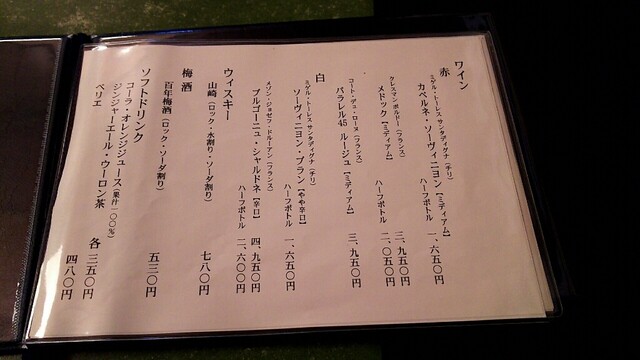 ワイン
赤
ミゲル・トーレス サンタディグナ（チリ）
カベルネ・ソーヴィニヨン【ミディアム】
ハーフボトル 一、六五〇円
クレスマン ボルドー（フランス）
メドック【ミディアム】 三、九五〇円
ハーフボトル 二、〇五〇円
コート・デュ・ローヌ（フランス）
パラレル45 ルージュ【ミディアム】 三、九五〇円
白
ミゲル・トーレス サンタディグナ（チリ）
ソーヴィニヨン・ブラン【やや辛口】
ハーフボトル 一、六五〇円
メゾン・ジョゼフ・ドルーアン（フランス）
ブルゴーニュ・シャルドネ【辛口】 四、九五〇円
ハーフボトル 二、六〇〇円
ウィスキー
山崎（ロック・水割り・ソーダ割り） 七八〇円
梅酒
百年梅酒（ロック・ソーダ割り） 五三〇円
ソフトドリンク
コーラ・オレンジジュース（果汁一〇〇％）
ジンジャーエール・ウーロン茶 各 三五〇円
ペリエ 四八〇円